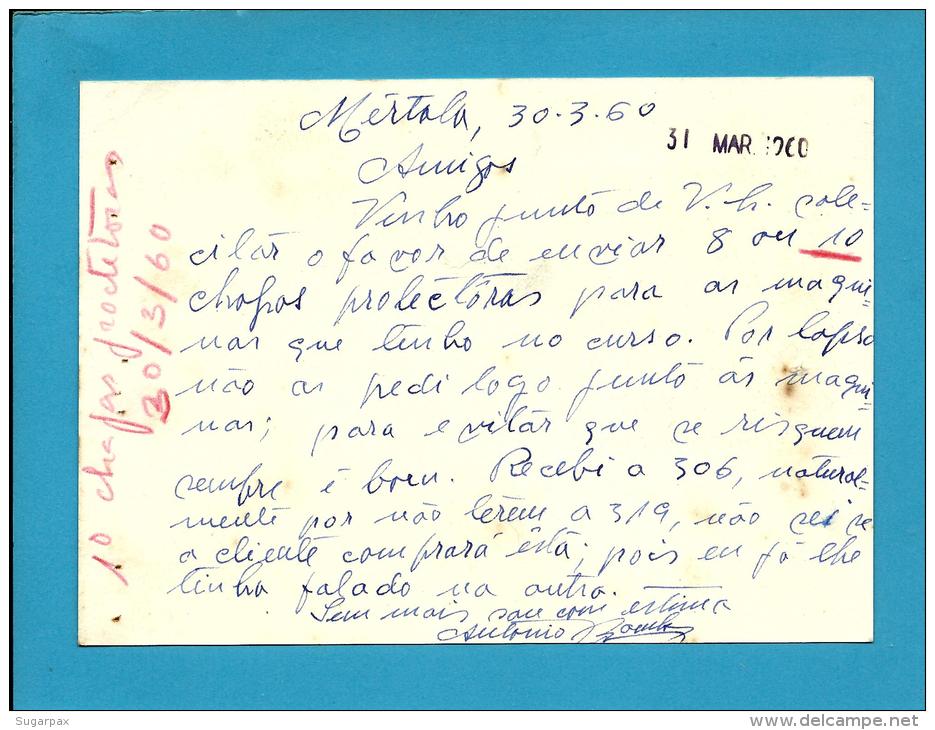 Mértola, 30.3.60
31 MAR. 1960
Amigos
Venho junto de V. h. sole=
citar o favor de enviar 8 ou 10
chapas protectôras para as maqui=
nas que tenho no curso. Por lapso
não as pedi logo junto ás maqui=
nas; para evitar que se risquem
sempre é bom. Recebi a 306, natural=
mente por não terem a 319, não sei se
o cliente comprará ésta; pois eu já lhe
tinha falado na outra.
Sem mais sou com estima
António
10 chapas protetôras
30/3/60
Sugarpax
www.delcampe.net